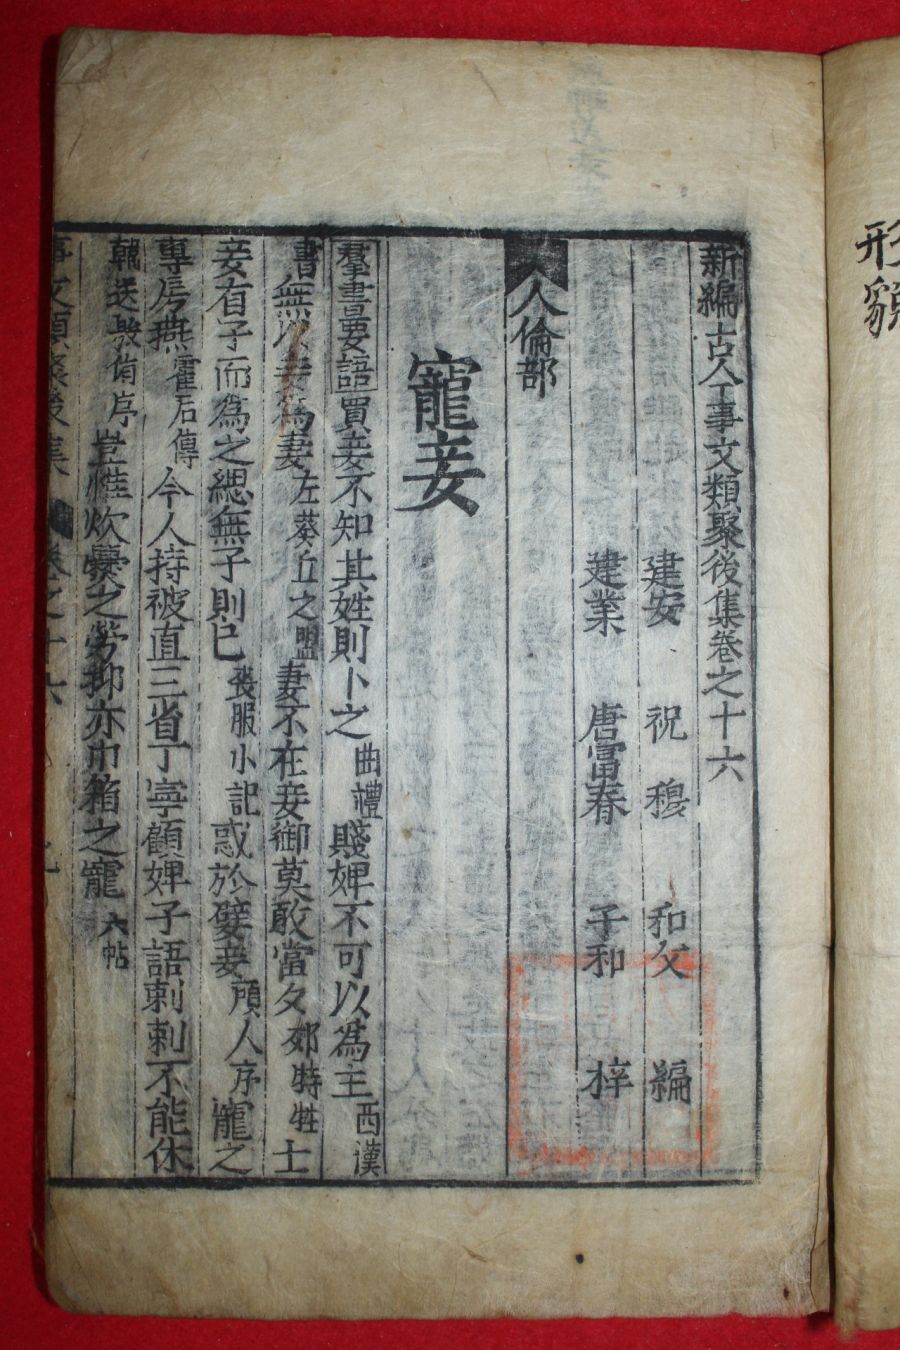 新編古今事文類聚後集卷之十六
建安 祝穆 和父 編
建業 唐富春 子和 梓
人倫部
寵妾
羣書要語買妾不知其姓則卜之曲禮賤婢不可以為主西漢
書無以妾為妻左葵丘之盟妻不在妾御莫敢當夕郊特牲士
妾有子而為之緦無子則已喪服小記惑於嬖妾碩人序寵之
專房燕霍后傳今人持被直三省丁寧顧婢子語剌剌不能休
韓送殷侑序豈惟炊爨之勞抑亦巾箱之寵六帖
事文類聚後集 卷之十六
形貌